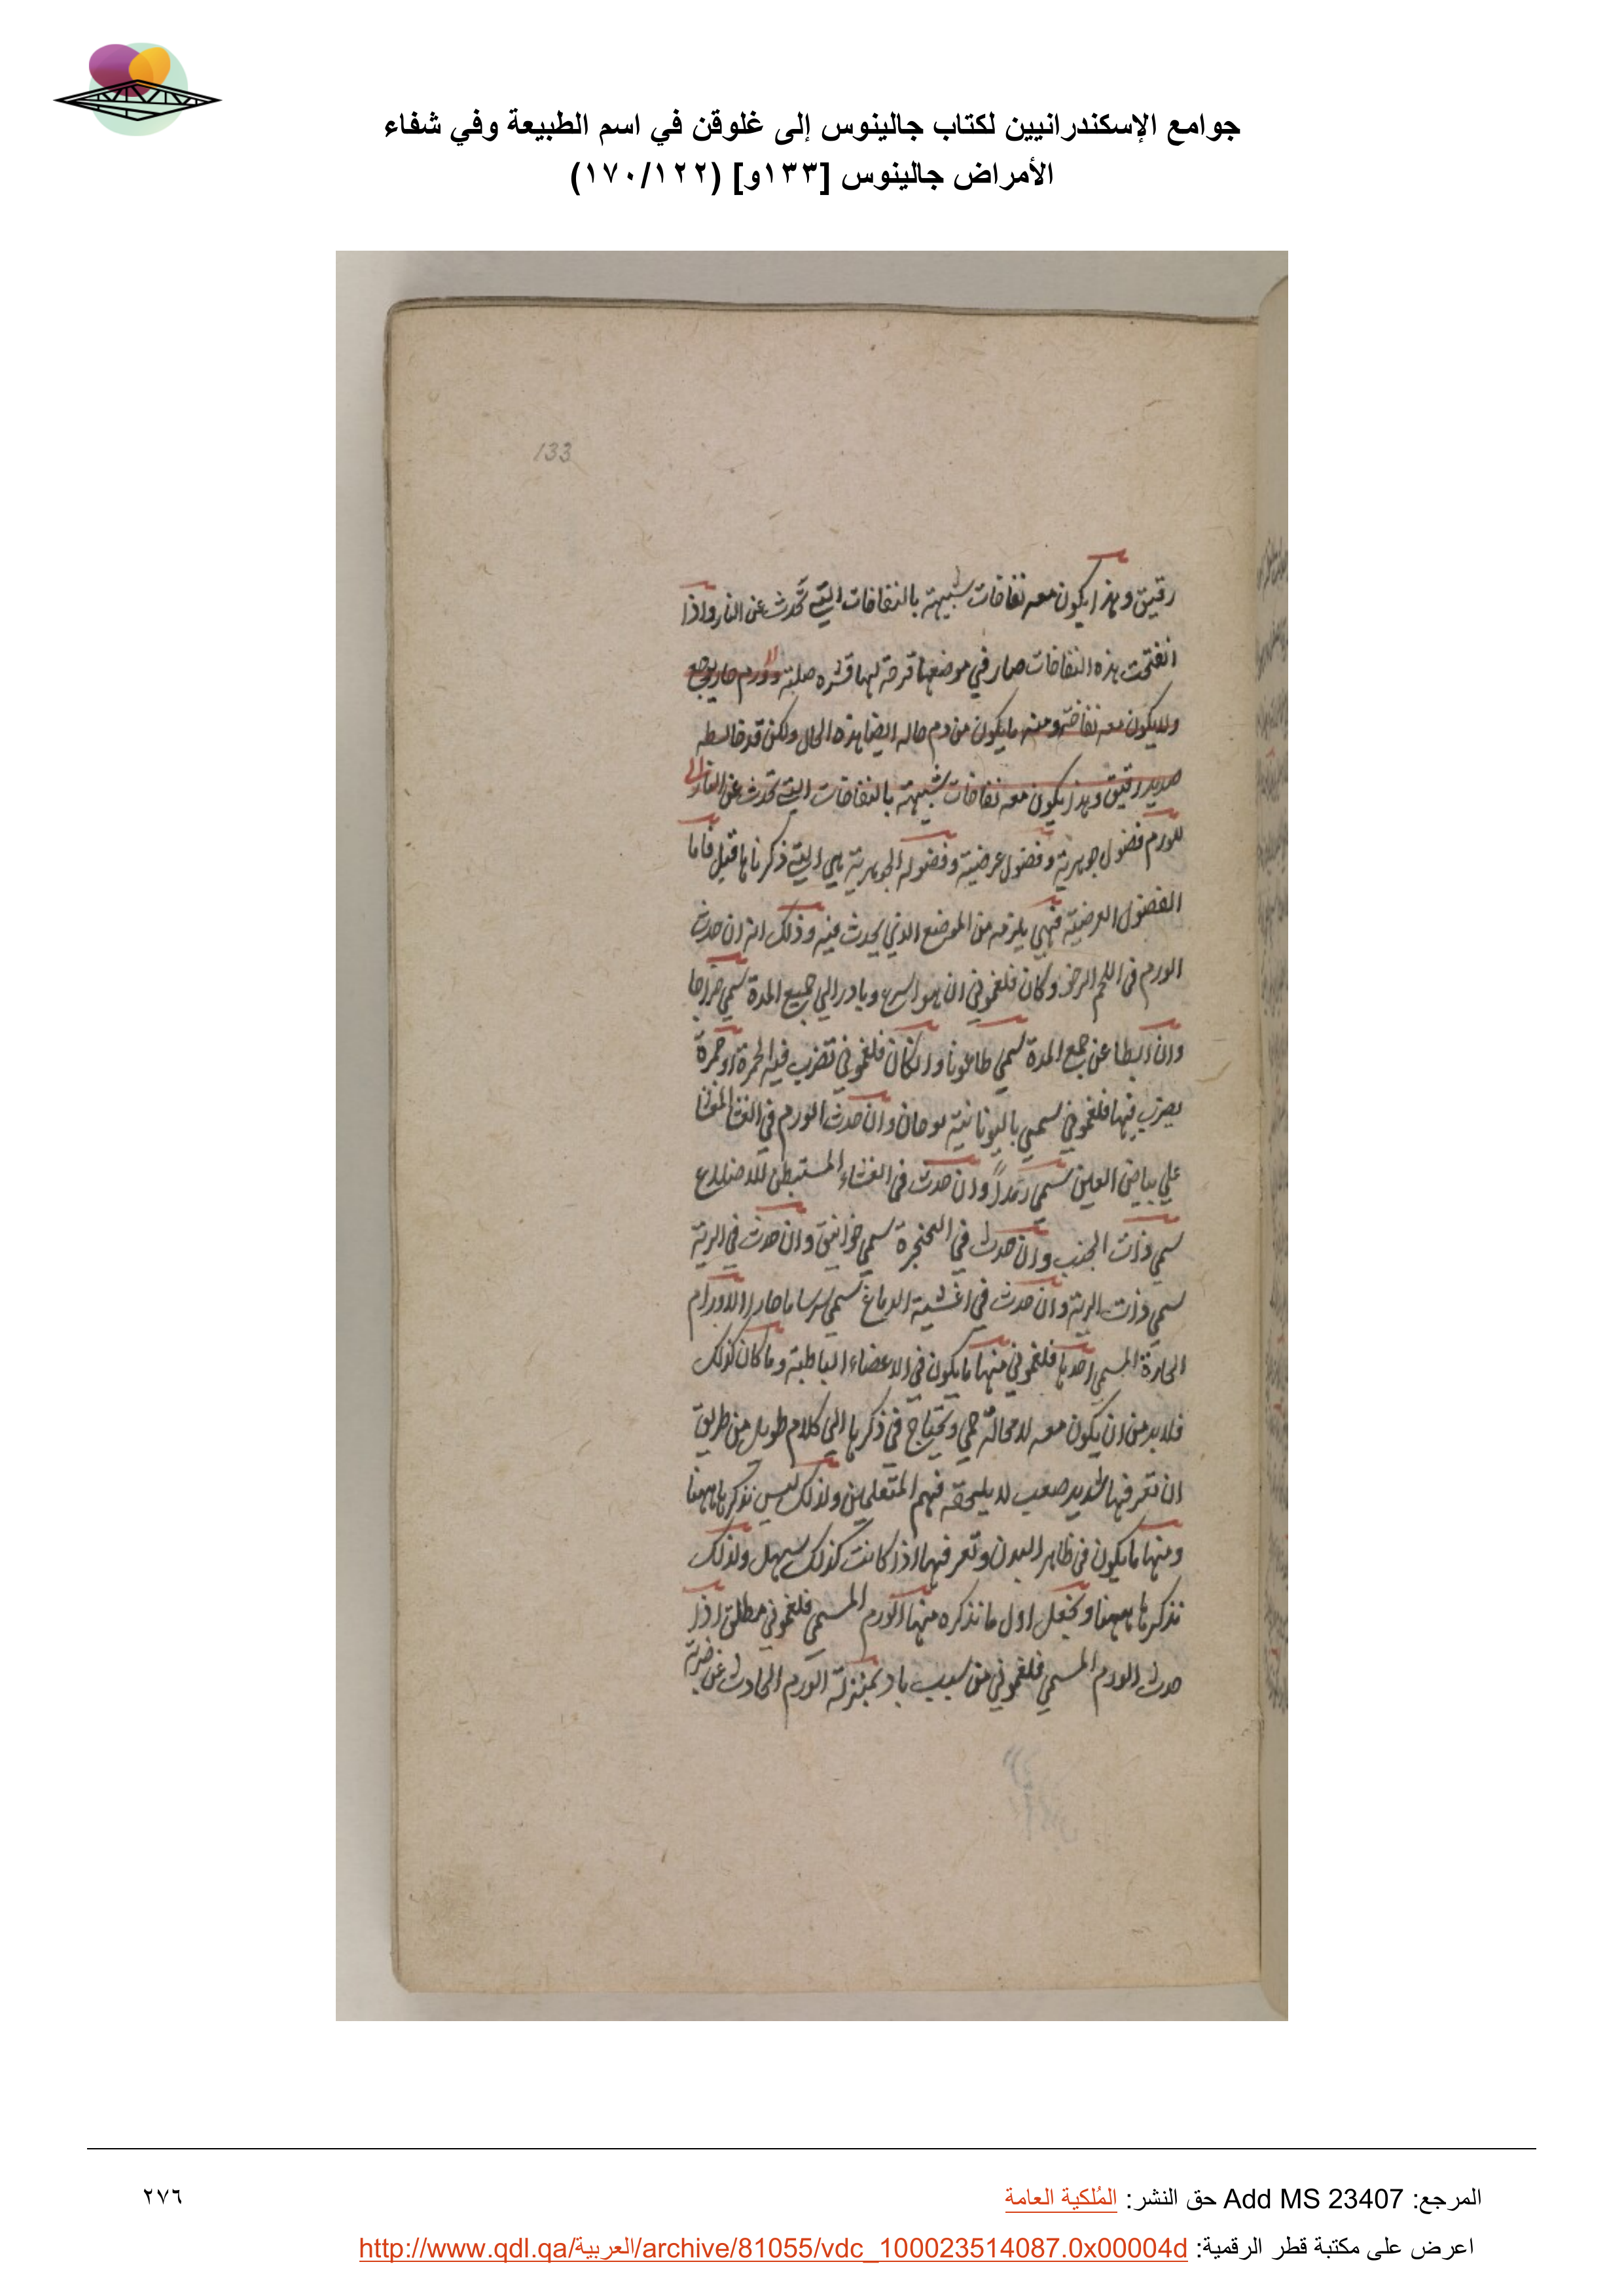 جوامع الإسكندرانيين لكتاب جالينوس إلى غلوقن في اسم الطبيعة وفي شفاء
الأمراض جالينوس [١٣٣و] (١٧٠/١٢٢)
133
رقيق وهذا يكون معه نفاخات شبيهة بالنفاخات التي تحدث عن النار واذا
انفتحت هذه النفاخات صار في موضعها قرحة لها قشره صلبة وورم حار يوجع
ولا يكون معه نفاخة ومنه ما يكون من دم حاله ايضا هذه الحال ولكن قد خالطه
صديد رقيق وهذا يكون معه نفاخات شبيهة بالنفاخات التي تحدث عن النار
للورم فضول جوهرية وفضول عرضية وفضوله الجوهرية هي التي ذكرناها قبل فاما
الفضول العرضية فهي يلزمه من الموضع الذي يحدث فيه وذلك انه ان حدث
الورم في اللحم الرخو وكان فلغموني ان هو اسرع وبادر الي جميع المدة سمي خراجا
وان ابطا عن جمع المدة سمي طاعونا وان كان فلغموني تضرب فيه الحمرة او حمرة
يضرب فيها فلغموني سمي باليونانية بوحان وان حدث الورم في الغشا الموشا
علي بياض العين سمي رمداً وان حدث في الغشاء المستبطن للاضلاع
سمي ذات الجنب وان حدث في الحنجرة سمي خوانيق وان حدث في الرية
سمي ذات الرية وان حدث في اغشية الدماغ سمي سرساما حارا الاورام
الحارة المسمي احدها فلغموني منها ما يكون في الاعضاء الباطنة وما كان كذلك
فلا بد من ان يكون معه لا محالة حمي ويحتاج في ذكرها الي كلام طويل من طريق
ان تعرفها شديد صعب لا يلحقه فهم المتعلمين ولذلك ليس نذكرها ههنا
ومنها ما يكون في ظاهر البدن وتعرفها اذا كانت كذلك سهل ولذلك
نذكرها ههنا ونجعل اول ما نذكره منها الورم المسمي فلغموني مطلق اذا
حدث الورم المسمي فلغموني من سبب باد بمنزلة الورم الحادث عن ضربة
المرجع: Add MS 23407 حق النشر: المُلكية العامة
٢٧٦
اعرض على مكتبة قطر الرقمية: http://www.qdl.qa/العربية/archive/81055/vdc_100023514087.0x00004d